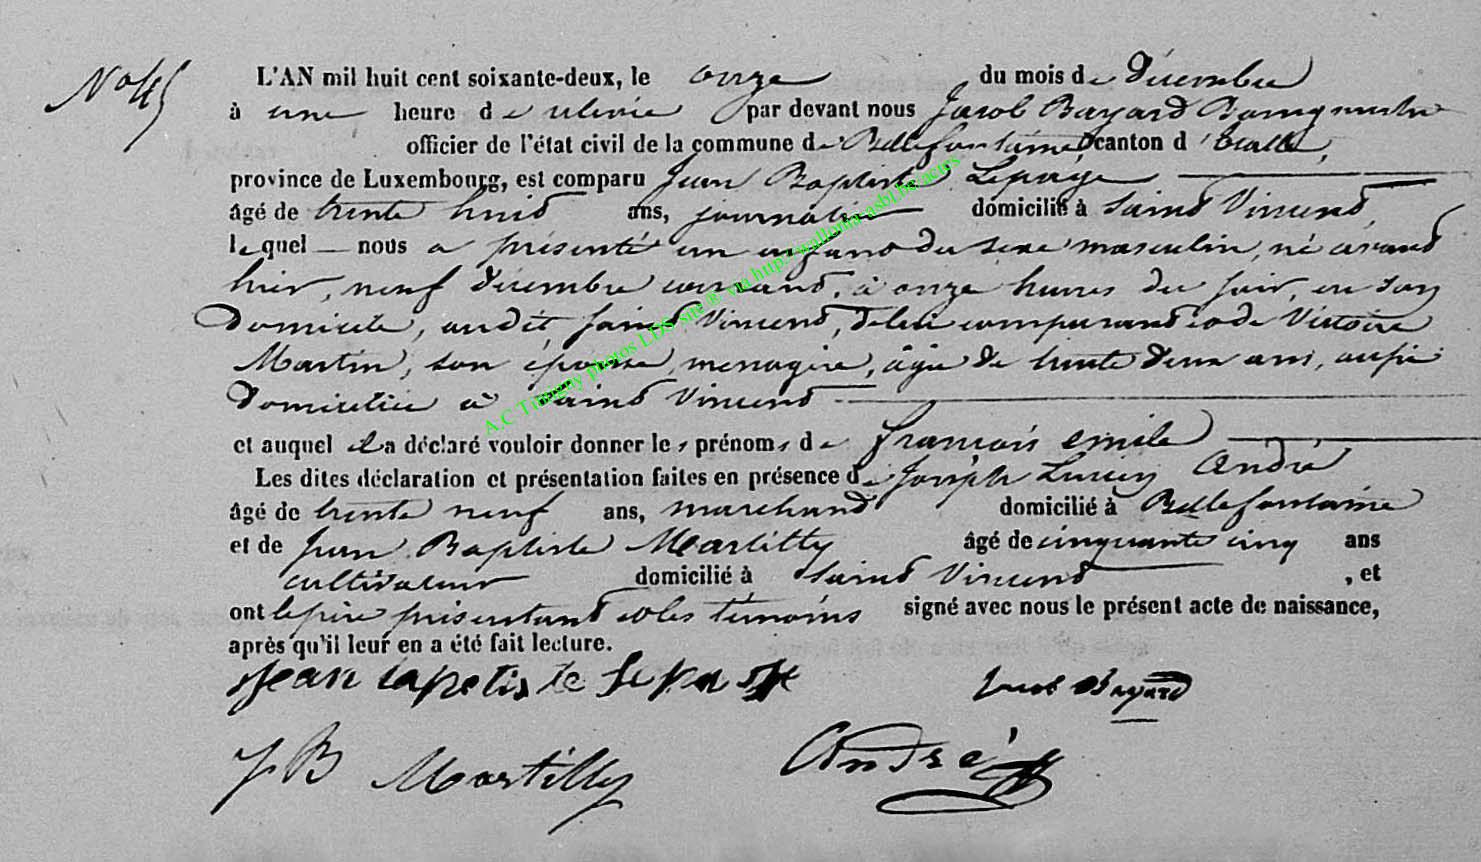 No 45
L'AN mil huit cent soixante-deux, le onze du mois de décembre
à une heure de relevée par devant nous Jacob Bayard Bourgmestre
officier de l'état civil de la commune de Bellefontaine canton d'Etalle,
province de Luxembourg, est comparu Jean Baptiste Lepage
âgé de trente huit ans, journalier domicilié à Saint Vincent,
lequel nous a présenté un enfant du sexe masculin, né avant
hier, neuf décembre courant, à onze heures du soir, en son
domicile, audit Saint Vincent, de lui comparant et de Victoire
Martin, son épouse, menagère, âgée de trente deux ans, aussi
domiciliée à Saint Vincent
et auquel il a déclaré vouloir donner les prénoms de françois émile
Les dites déclaration et présentation faites en présence de Joseph Lucien André
âgé de trente neuf ans, marchand domicilié à Bellefontaine
et de Jean Baptiste Martilly âgé de cinquante cinq ans
cultivateur domicilié à Saint Vincent, et
ont le père présentant et les témoins signé avec nous le présent acte de naissance,
après qu'il leur en a été fait lecture.
Jean bapetiste Lepage Jacob Bayard
J B Martilly André
A.C Tintigny photos LDS site ® via http://wallonia-asbl.be/actes